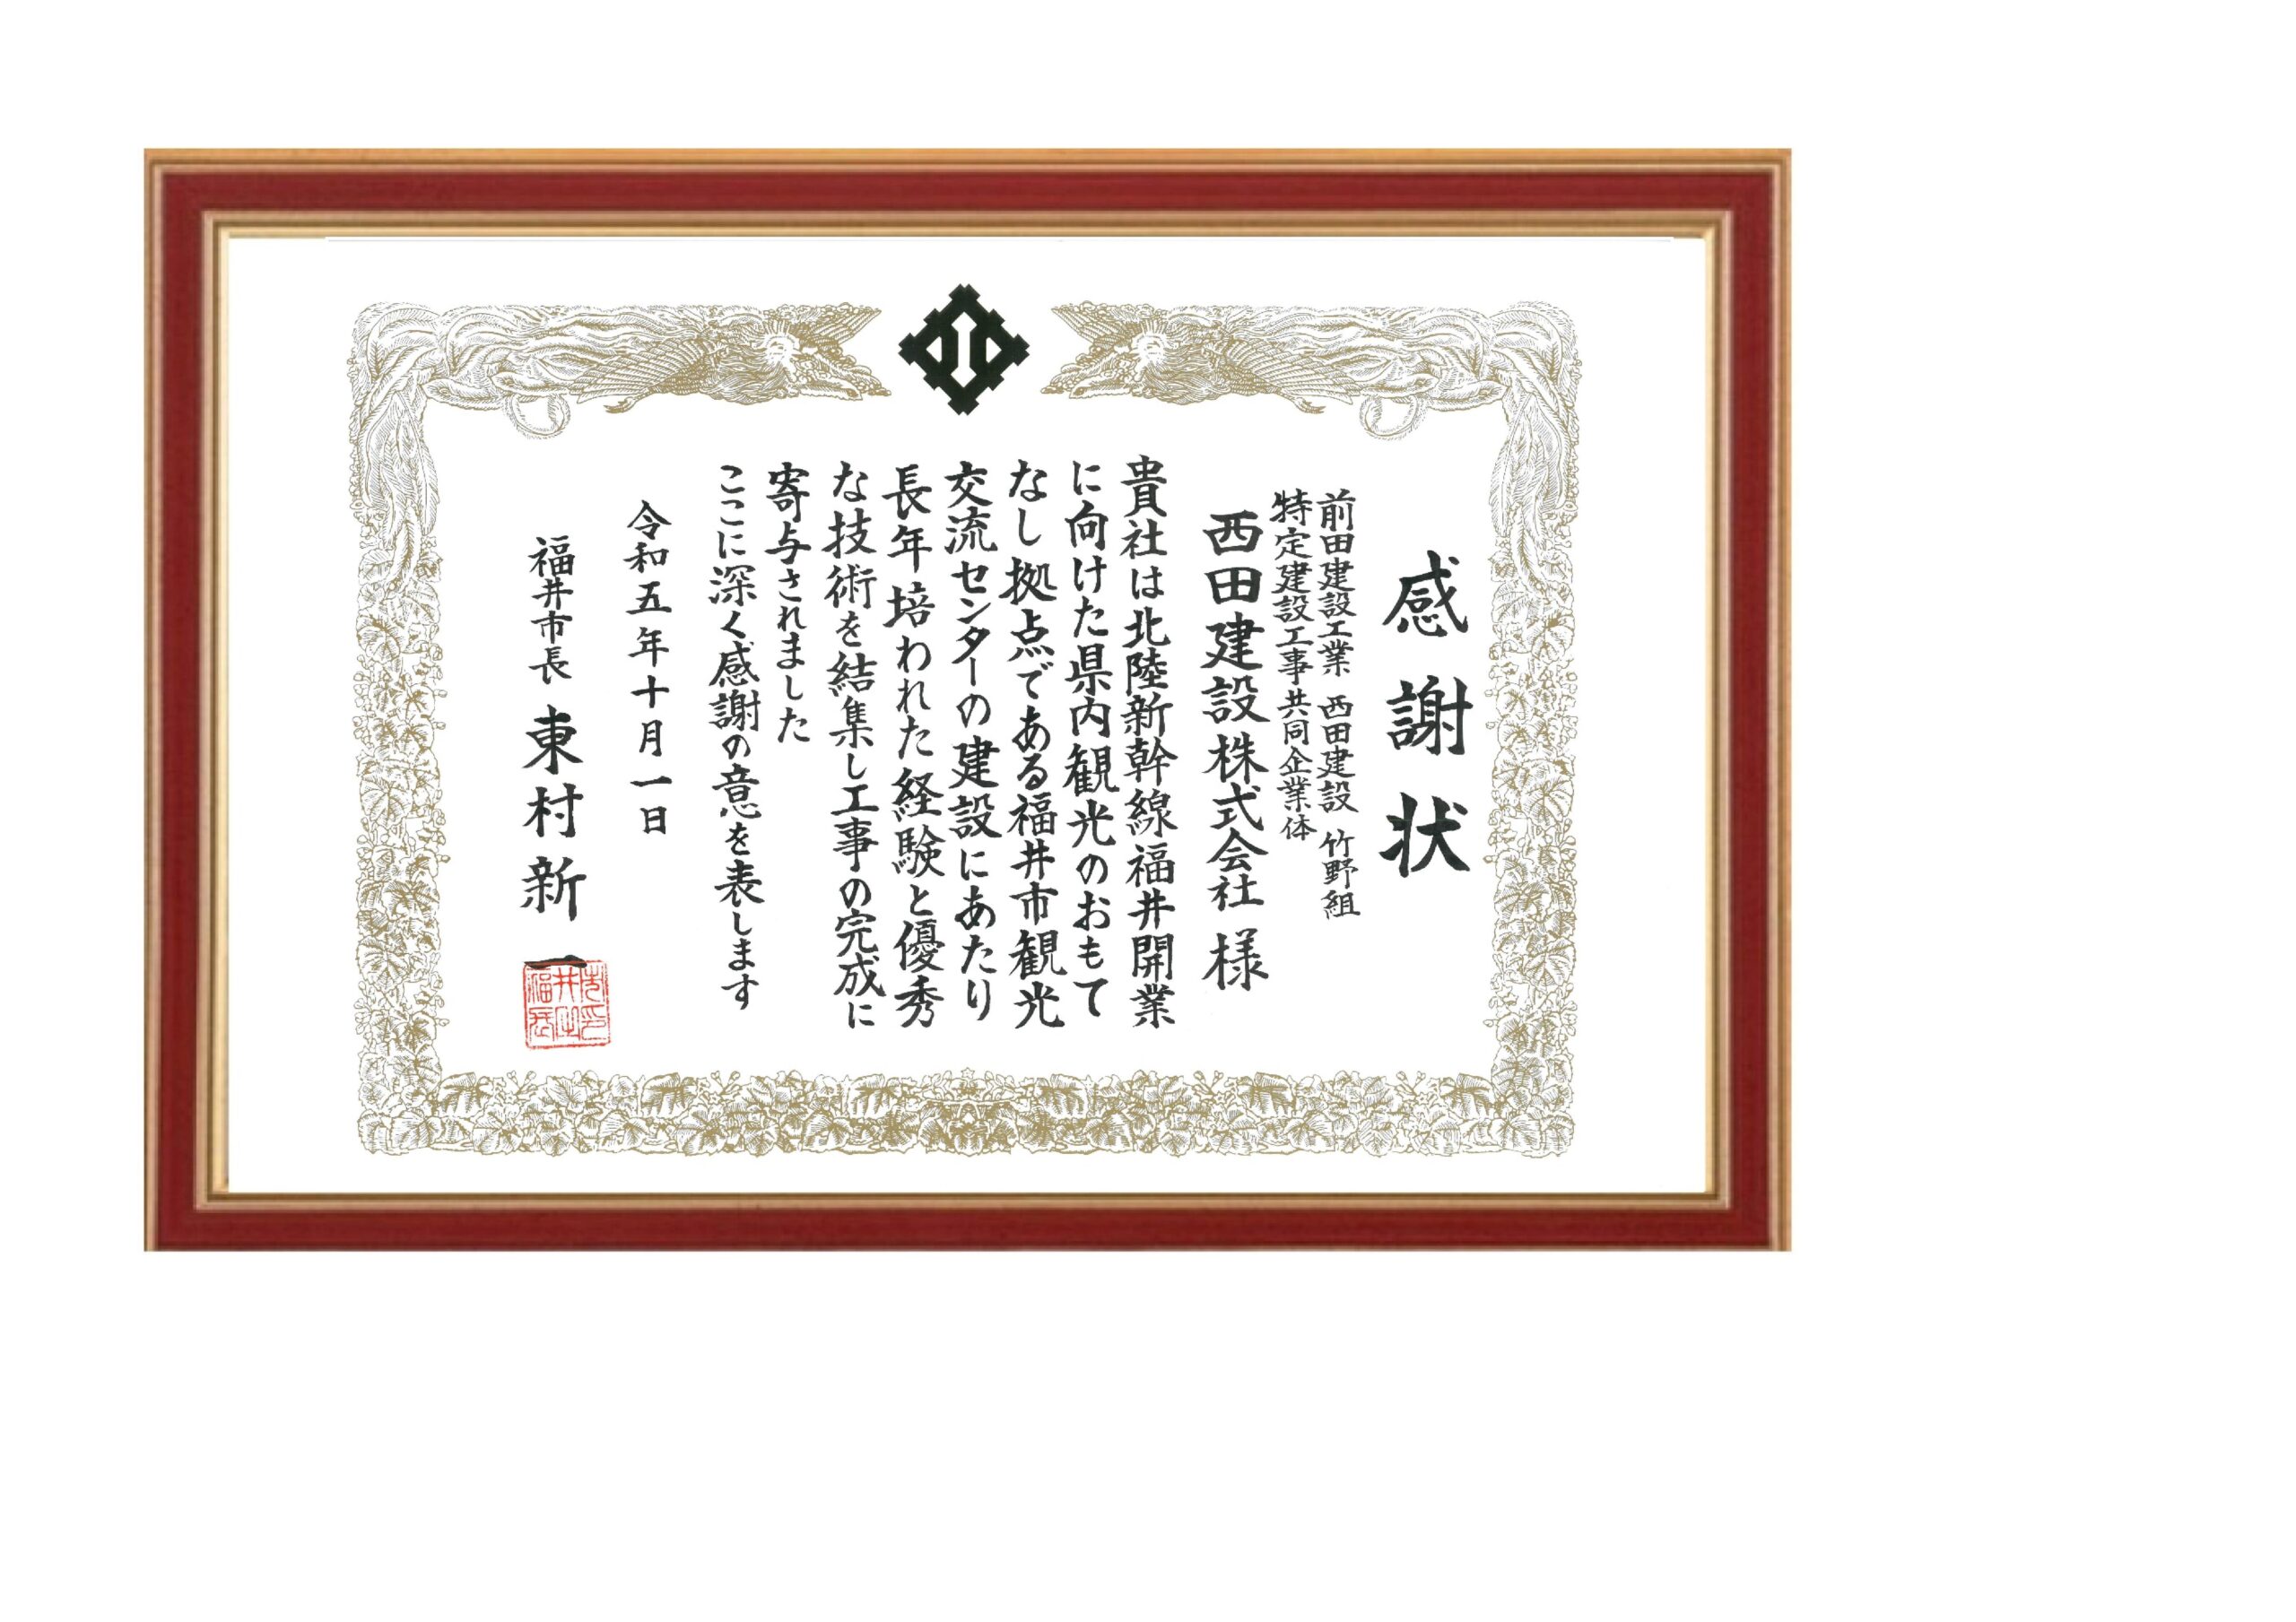 感謝状
前田建設工業 西田建設 竹野組
特定建設工事共同企業体
西田建設株式会社 様
貴社は北陸新幹線福井開業
に向けた県内観光のおもて
なし拠点である福井市観光
交流センターの建設にあたり
長年培われた経験と優秀
な技術を結集し工事の完成に
寄与されました
ここに深く感謝の意を表します
令和五年十月一日
福井市長 東村新一